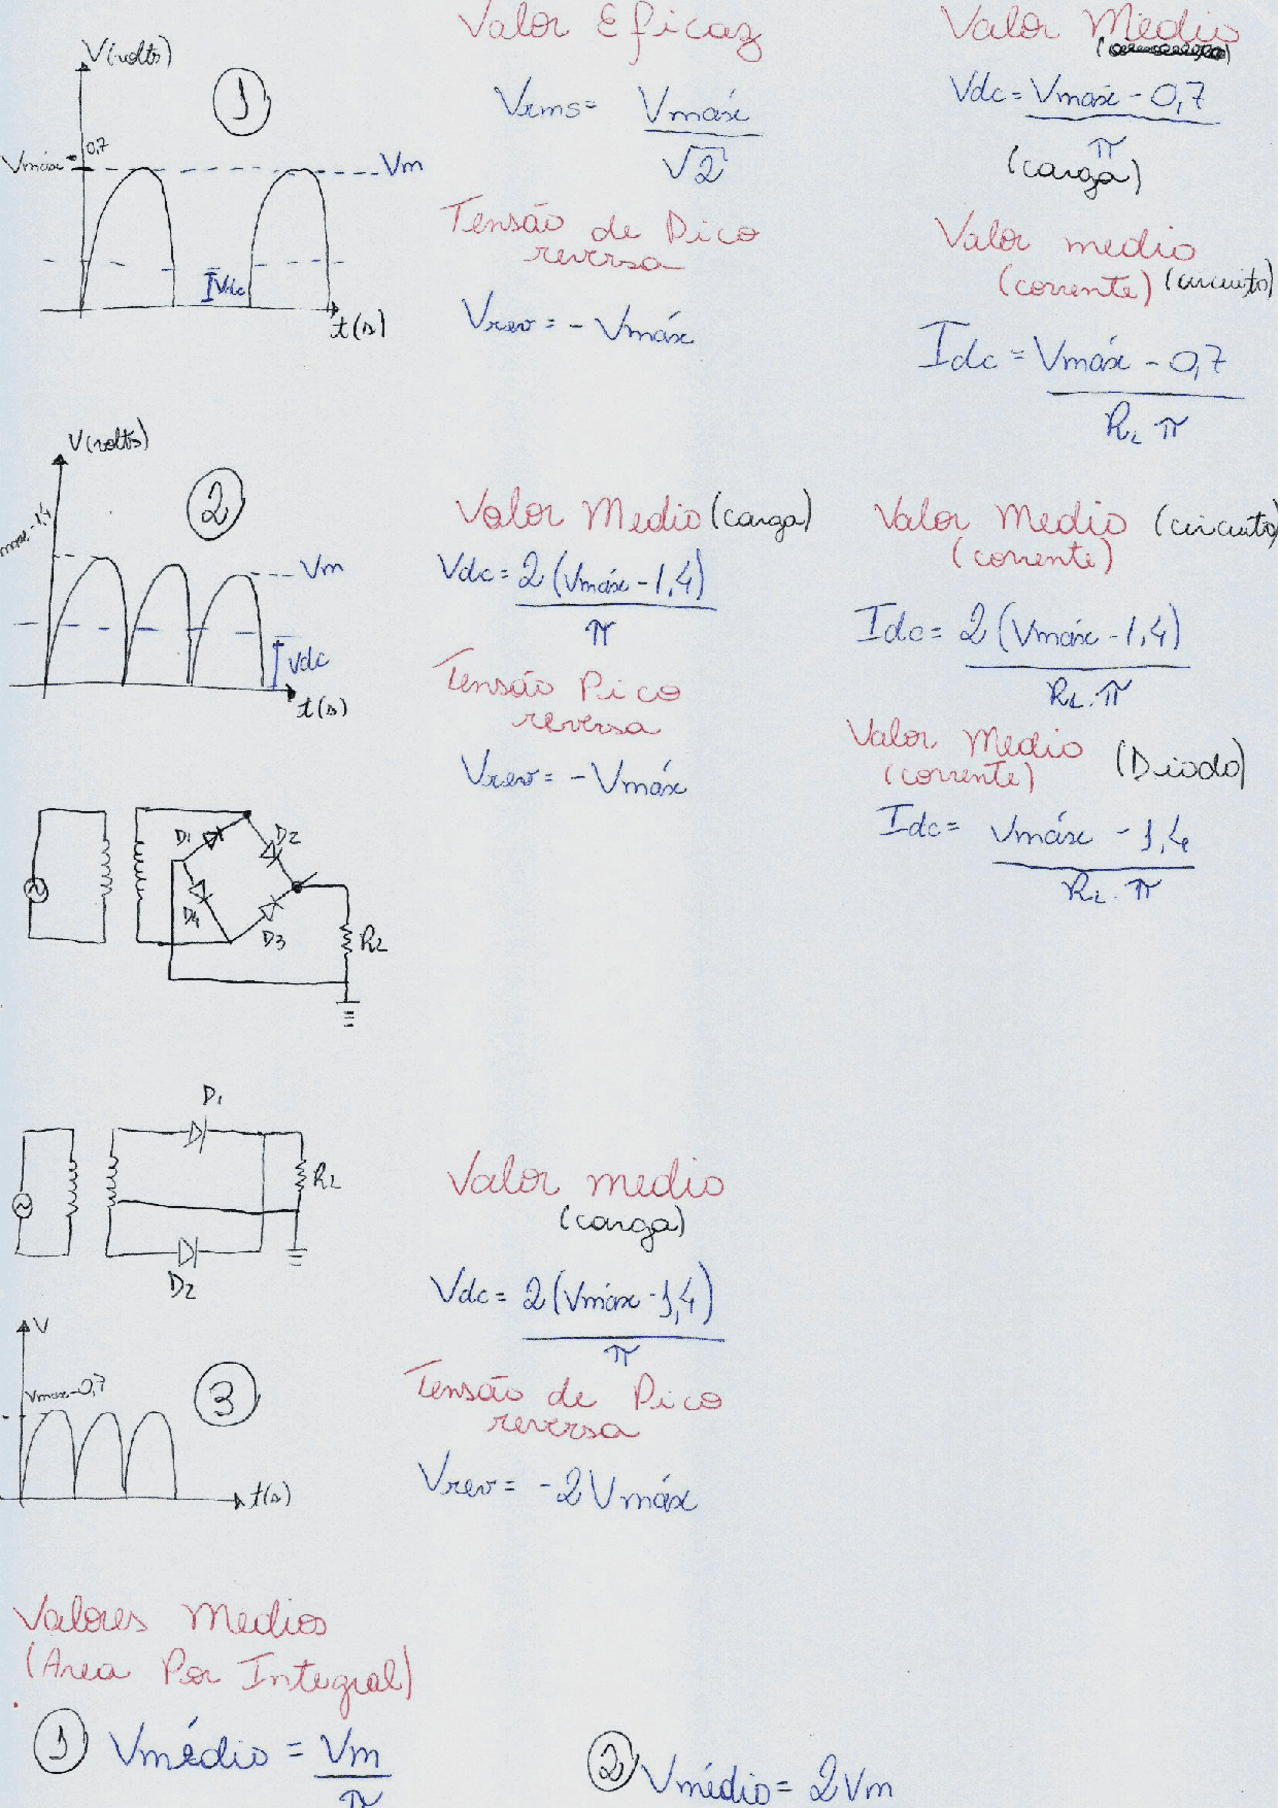 Valor Eficaz
Valor Médio
V(volts)
1
Vrms = Vmáx
√2
Vdc = Vmáx - 0,7
π
(carga)
Vmáx - 0,7
Vm
Vdc
t(s)
Tensão de Pico
reversa
Vrev = - Vmáx
Valor medio
(corrente) (circuito)
Idc = Vmáx - 0,7
RL π
V(volts)
2
Vm
Vdc
t(s)
Valor Medio (carga)
Vdc = 2 (Vmáx - 1,4)
π
Tensão Pico
reversa
Vrev = - Vmáx
Valor Medio (circuito)
(corrente)
Idc = 2 (Vmáx - 1,4)
RL . π
Valor Medio (Diodo)
(corrente)
Idc = Vmáx - 1,4
RL . π
D1
D2
D4
D3
RL
D1
RL
D2
Valor medio
(carga)
Vdc = 2 (Vmáx - 1,4)
π
V
Vmax - 0,7
3
t(s)
Tensão de Pico
reversa
Vrev = - 2 Vmáx
Valores Medios
(Area Por Integral)
1 Vmédio = Vm
π
2 Vmédio = 2Vm